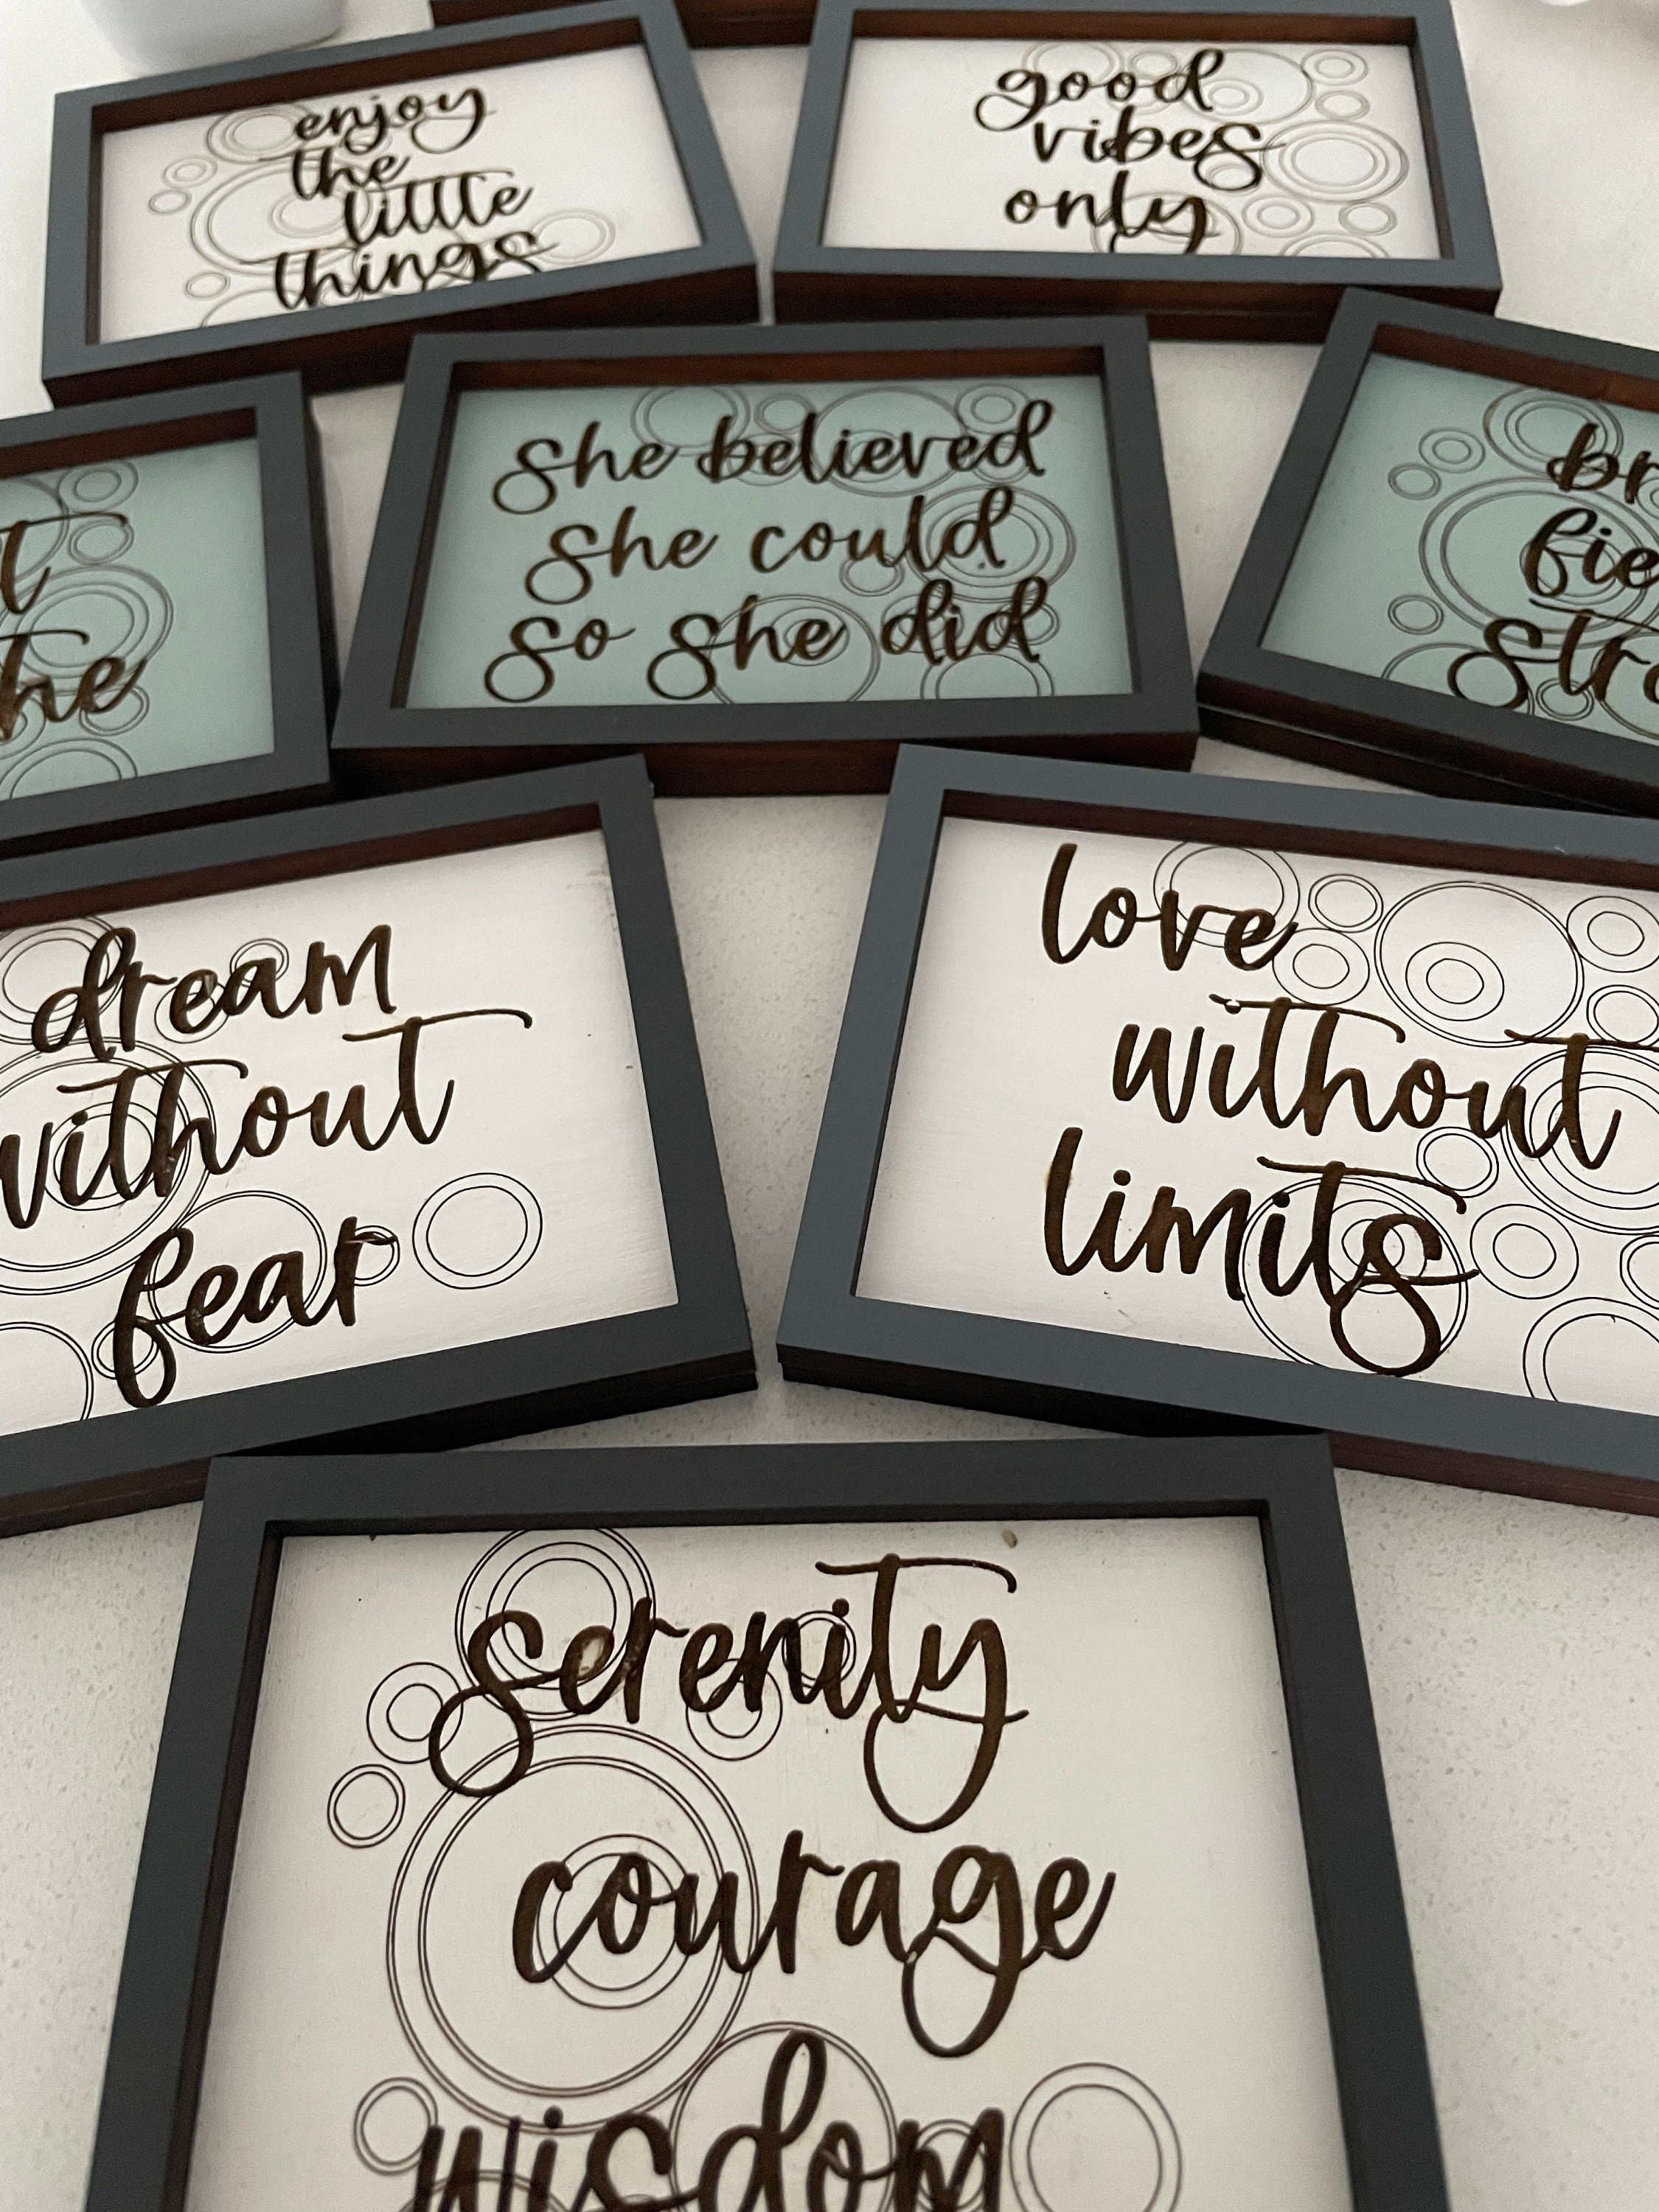 enjoy
the
little
things
good
vibes
only
he
she believed
she could
so she did
dream
without
fear
love
without
limits
serenity
courage
wisdom